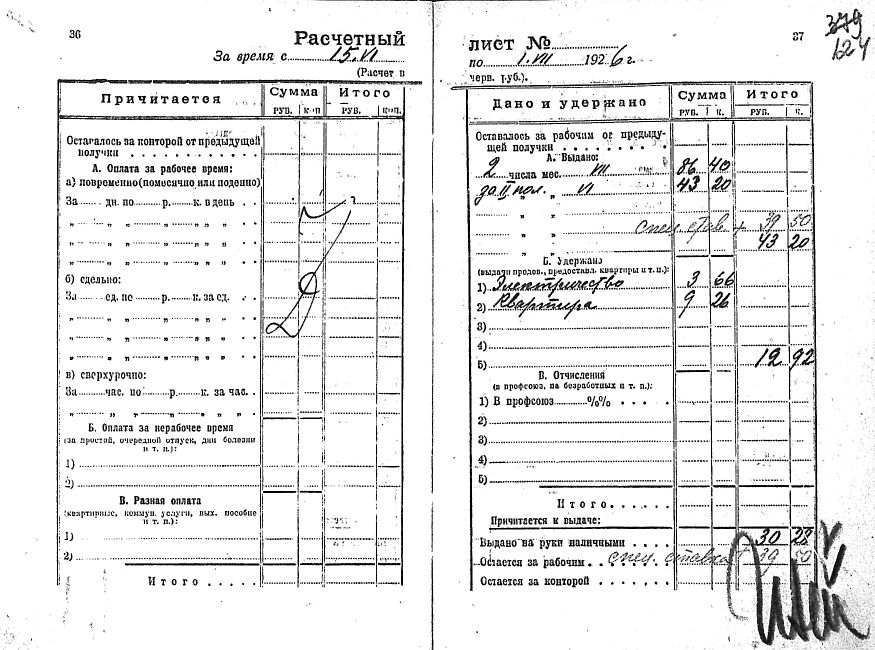 36
Расчетный
За время с 15.VI
(Расчет в
Причитается
Сумма
Итого
РУБ. КОП
РУБ. КОП.
Оставалось за конторой от предыдущей
получки
А. Оплата за рабочее время:
а) повременно (помесячно или поденно)
За дн. по р. к. в день
" " " " " "
" " " " " "
" " " " " "
б) сдельно:
За ед. по р. к. за ед.
" " " " " "
" " " " " "
" " " " " "
в) сверхурочно:
За час. по р. к. за час.
" " " " " "
Б. Оплата за нерабочее время
(за простой, очередной отпуск, дни болезни
и т. п.):
1)
2)
В. Разная оплата
(квартирные, коммун. услуги, вых. пособие
и т. п.):
1)
2)
Итого
37
379
124
лист №
по 1.VII 1926 г.
черв. руб.).
Дано и удержано
Сумма
Итого
РУБ. К.
РУБ. К.
Оставалось за рабочим от предыду-
щей получки
А. Выдано:
2 числа мес. VII 86 40
за II пол. " VI 43 20
" "
" " спец. став. 39 50
" " 43 20
Б. Удержано
(выдачи продов., предоставл. квартиры и т. п.):
1) Электричество 3 66
2) Квартира 9 26
3)
4)
5) 12 92
В. Отчисления
(в профсоюз, на безработных и т. п.):
1) В профсоюз %%
2)
3)
4)
5)
Итого
Причитается к выдаче:
Выдано на руки наличными 30 28
Остается за рабочим спец. ставка 39 50
Остается за конторой